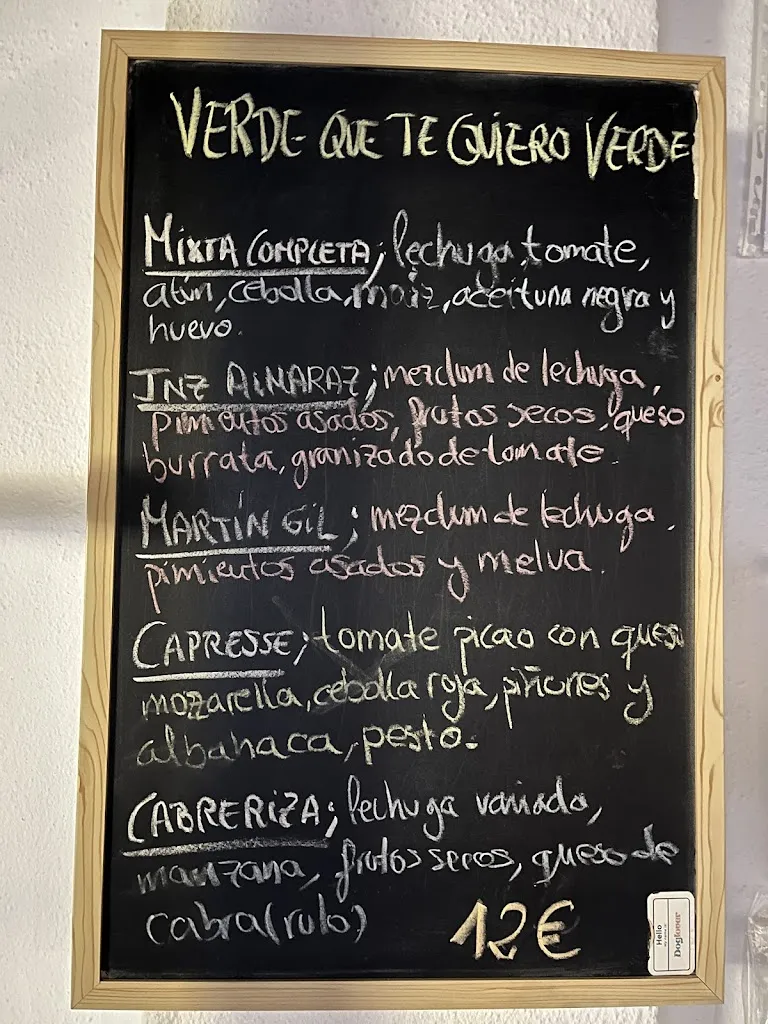 VERDE QUE TE QUIERO VERDE
MIXTA COMPLETA; lechuga, tomate,
atún, cebolla, maiz, aceituna negra y
huevo.
JNZ ALNARAZ; mezclum de lechuga,
pimientos asados, frutos secos, queso
burrata, granizado de tomate.
MARTÍN GIL; mezclum de lechuga,
pimientos asados y melva.
CAPRESSE; tomate picao con queso
mozzarella, cebolla roja, piñones y
albahaca, pesto.
CABRERIZA; lechuga variada,
manzana, frutos secos, queso de
cabra (rulo)
12€
Hello
Doglover